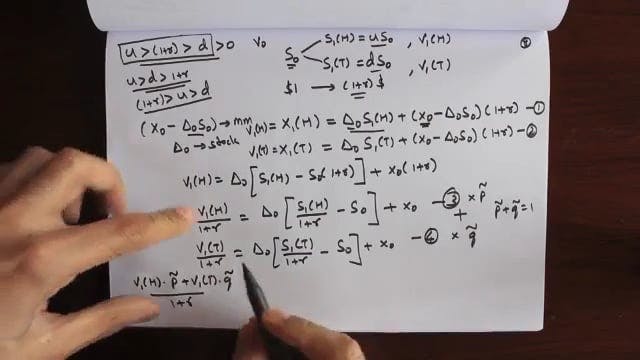 u > (1+r) > d > 0 V₀ S₀ S₁(H) = uS₀ , V₁(H)
u > d > 1+r S₁(T) = dS₀ , V₁(T)
(1+r) > u > d $1 → (1+r) $
(X₀ − Δ₀S₀) → mm V₁(H) = X₁(H) = Δ₀S₁(H) + (X₀ − Δ₀S₀)(1+r) − ①
Δ₀ → stock V₁(T) = X₁(T) = Δ₀ S₁(T) + (X₀ − Δ₀S₀)(1+r) − ②
V₁(H) = Δ₀ [S₁(H) − S₀(1+r)] + X₀(1+r)
V₁(H)/1+r = Δ₀ [S₁(H)/1+r − S₀] + X₀ − ③ × p̃
+ p̃ + q̃ = 1
V₁(T)/1+r = Δ₀ [S₁(T)/1+r − S₀] + X₀ − ④ × q̃
V₁(H) · p̃ + V₁(T) · q̃ / 1+r